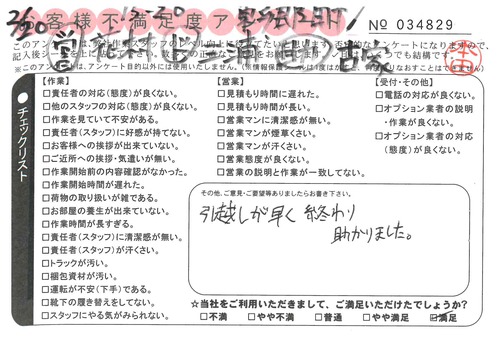 お客様不満足度ア
№ 034829
チェックリスト
【作業】
□責任者の対応(態度)が良くない。
□他のスタッフの対応(態度)が良くない。
□作業を見ていて不安がある。
□責任者(スタッフ)に好感が持てない。
□お客様への挨拶が出来ていない。
□ご近所への挨拶・気遣いが無い。
□作業開始前の内容確認がなかった。
□作業開始時間が遅れた。
□荷物の取り扱いが雑である。
□お部屋の養生が出来ていない。
□作業時間が長すぎる。
□責任者(スタッフ)に清潔感が無い。
□責任者(スタッフ)が汗くさい。
□トラックが汚い。
□梱包資材が汚い。
□運転が不安(下手)である。
□靴下の履き替えをしてない。
□スタッフにやる気がみられない。
【営業】
□見積もり時間に遅れた。
□見積もり時間が長い。
□営業マンに清潔感が無い。
□営業マンが煙草くさい。
□営業マンが汗くさい。
□営業態度が良くない。
□営業の説明と作業が一致してない。
【受付・その他】
□電話の対応が良くない。
□オプション業者の説明
・作業が良くない。
□オプション業者の対応
(態度)が良くない。
その他、ご意見・ご要望等ありましたらお書き下さい。
引越しが早く終わり
助かりました。
☆当社をご利用いただきまして、ご満足いただけたでしょうか?
□不満 □やや不満 □普通 □やや満足 ☑満足